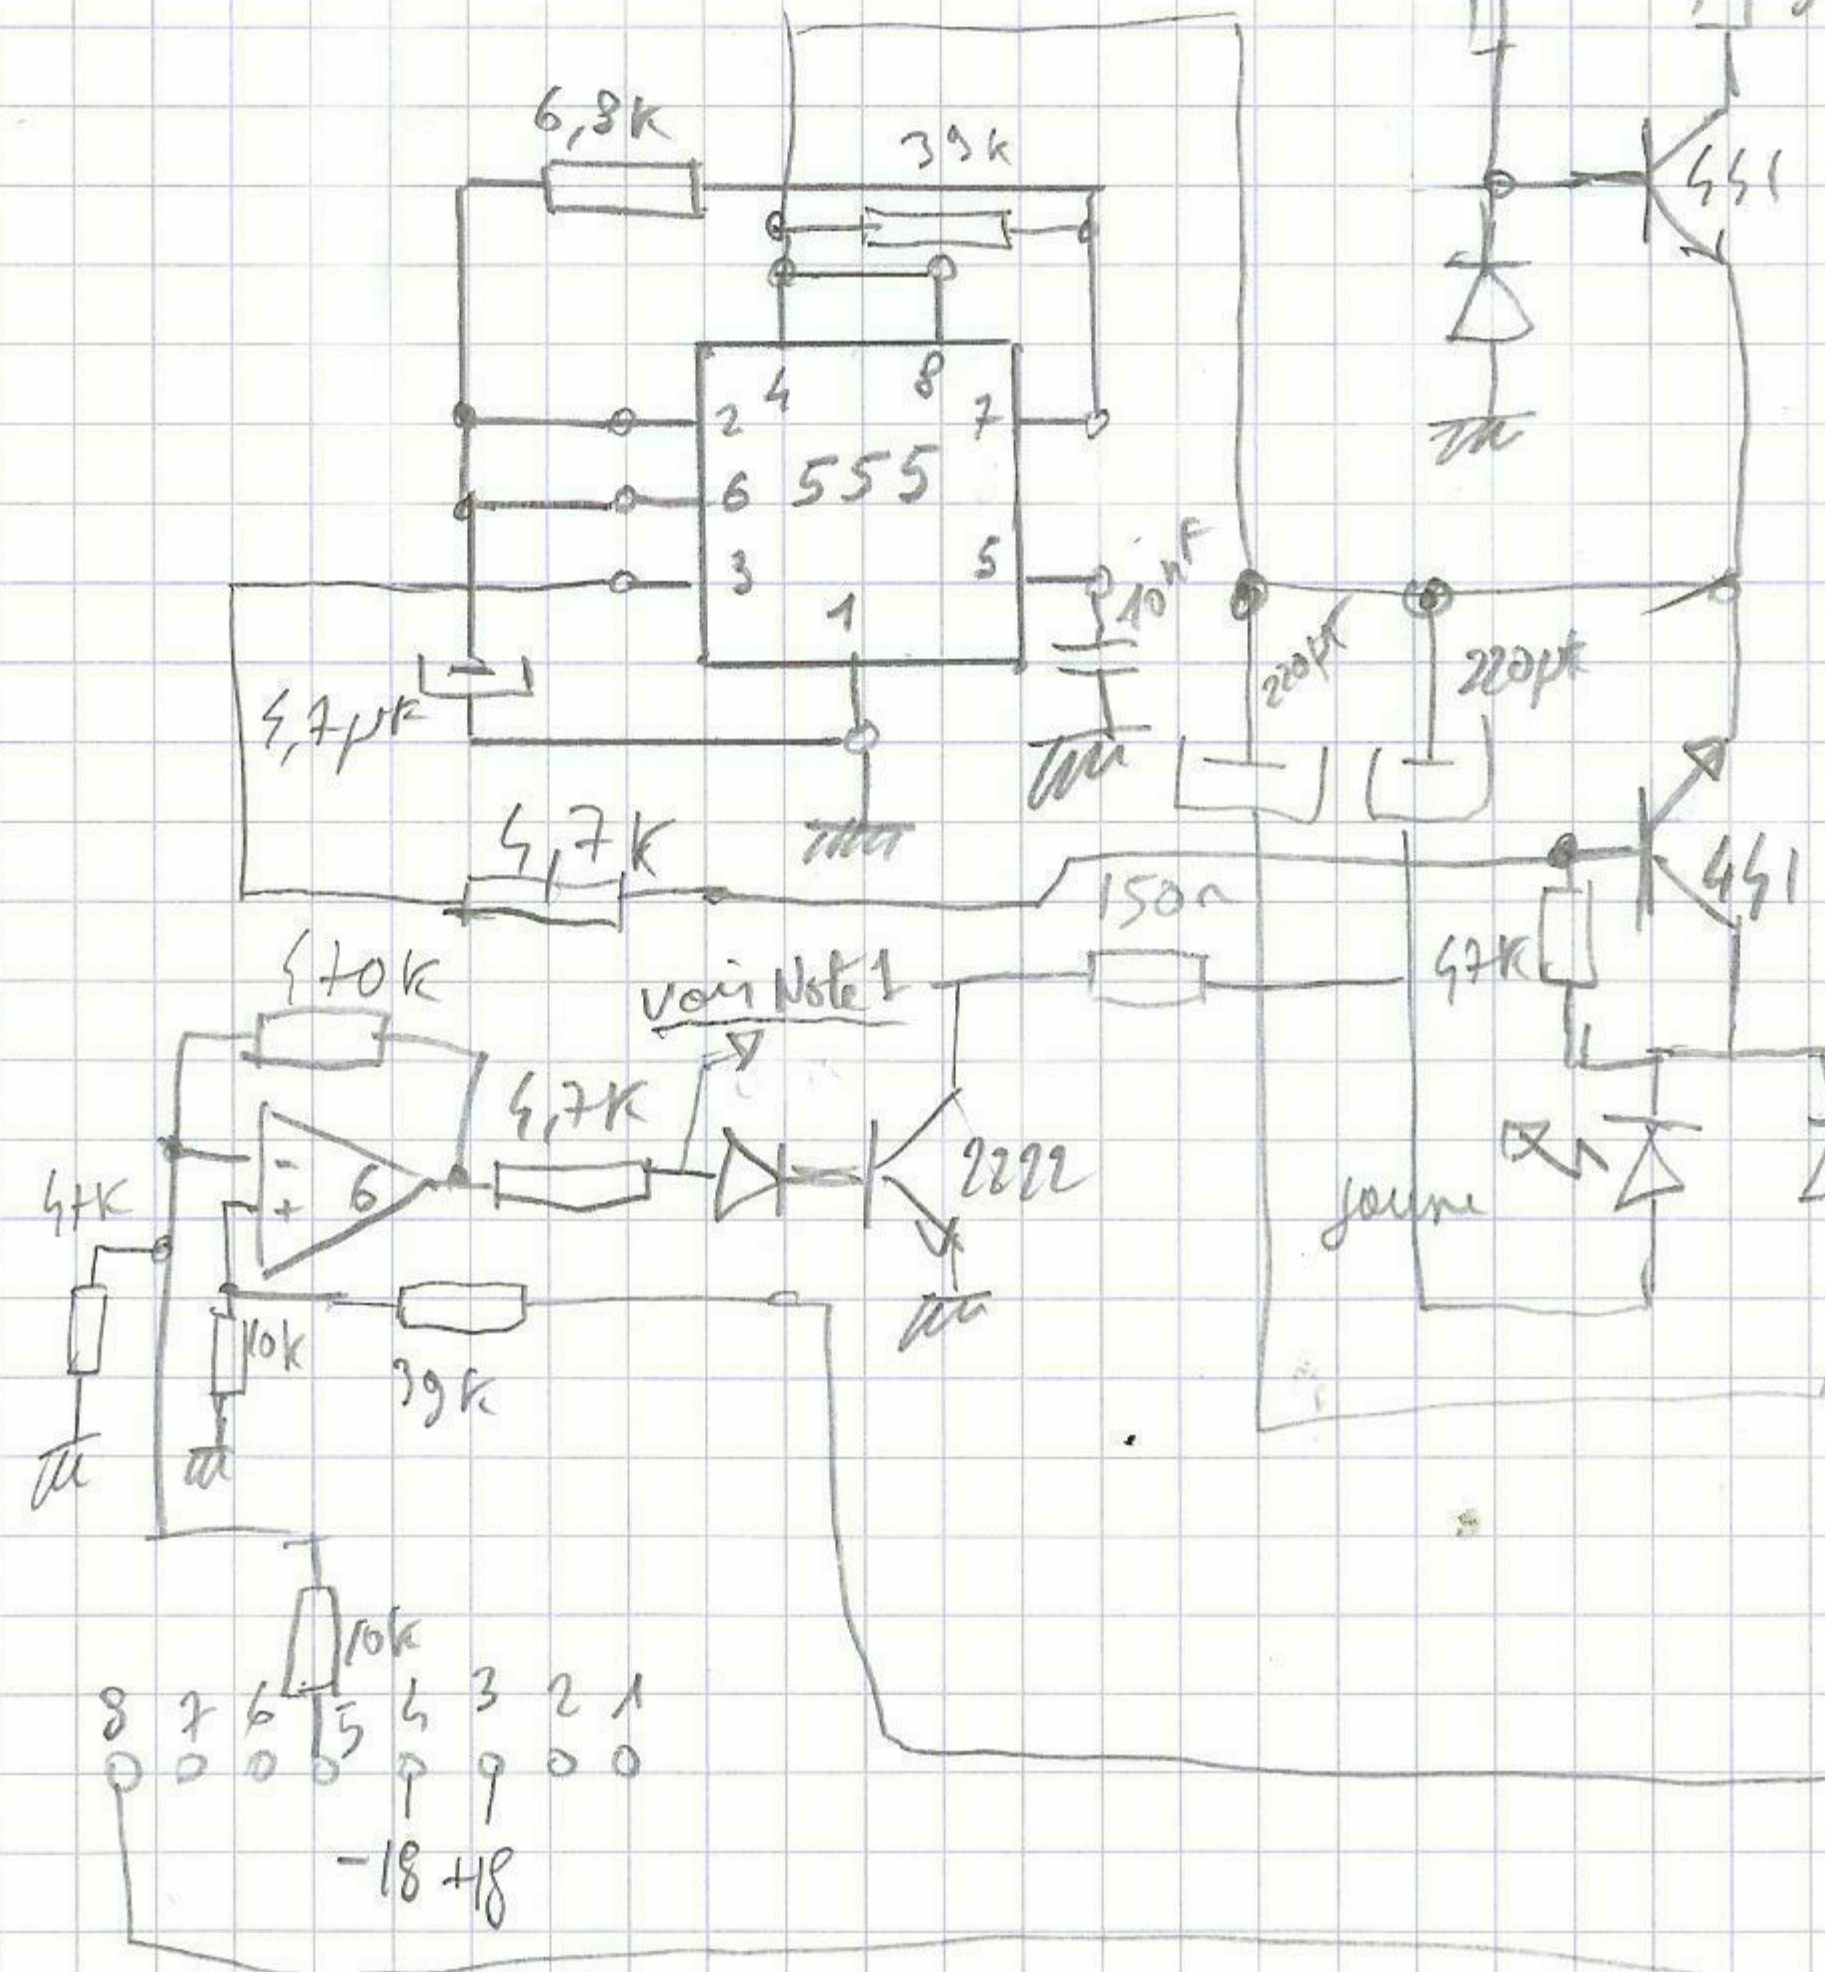 6,8k
39k
441
4
8
2
7
6
555
3
5
1
10nF
4,7µF
220µF
220µF
4,7k
150Ω
441
47k
470k
voir Note 1
4,7k
47k
-
+
6
2222
jaune
10k
39k
10k
8 7 6 5 4 3 2 1
-18 +18